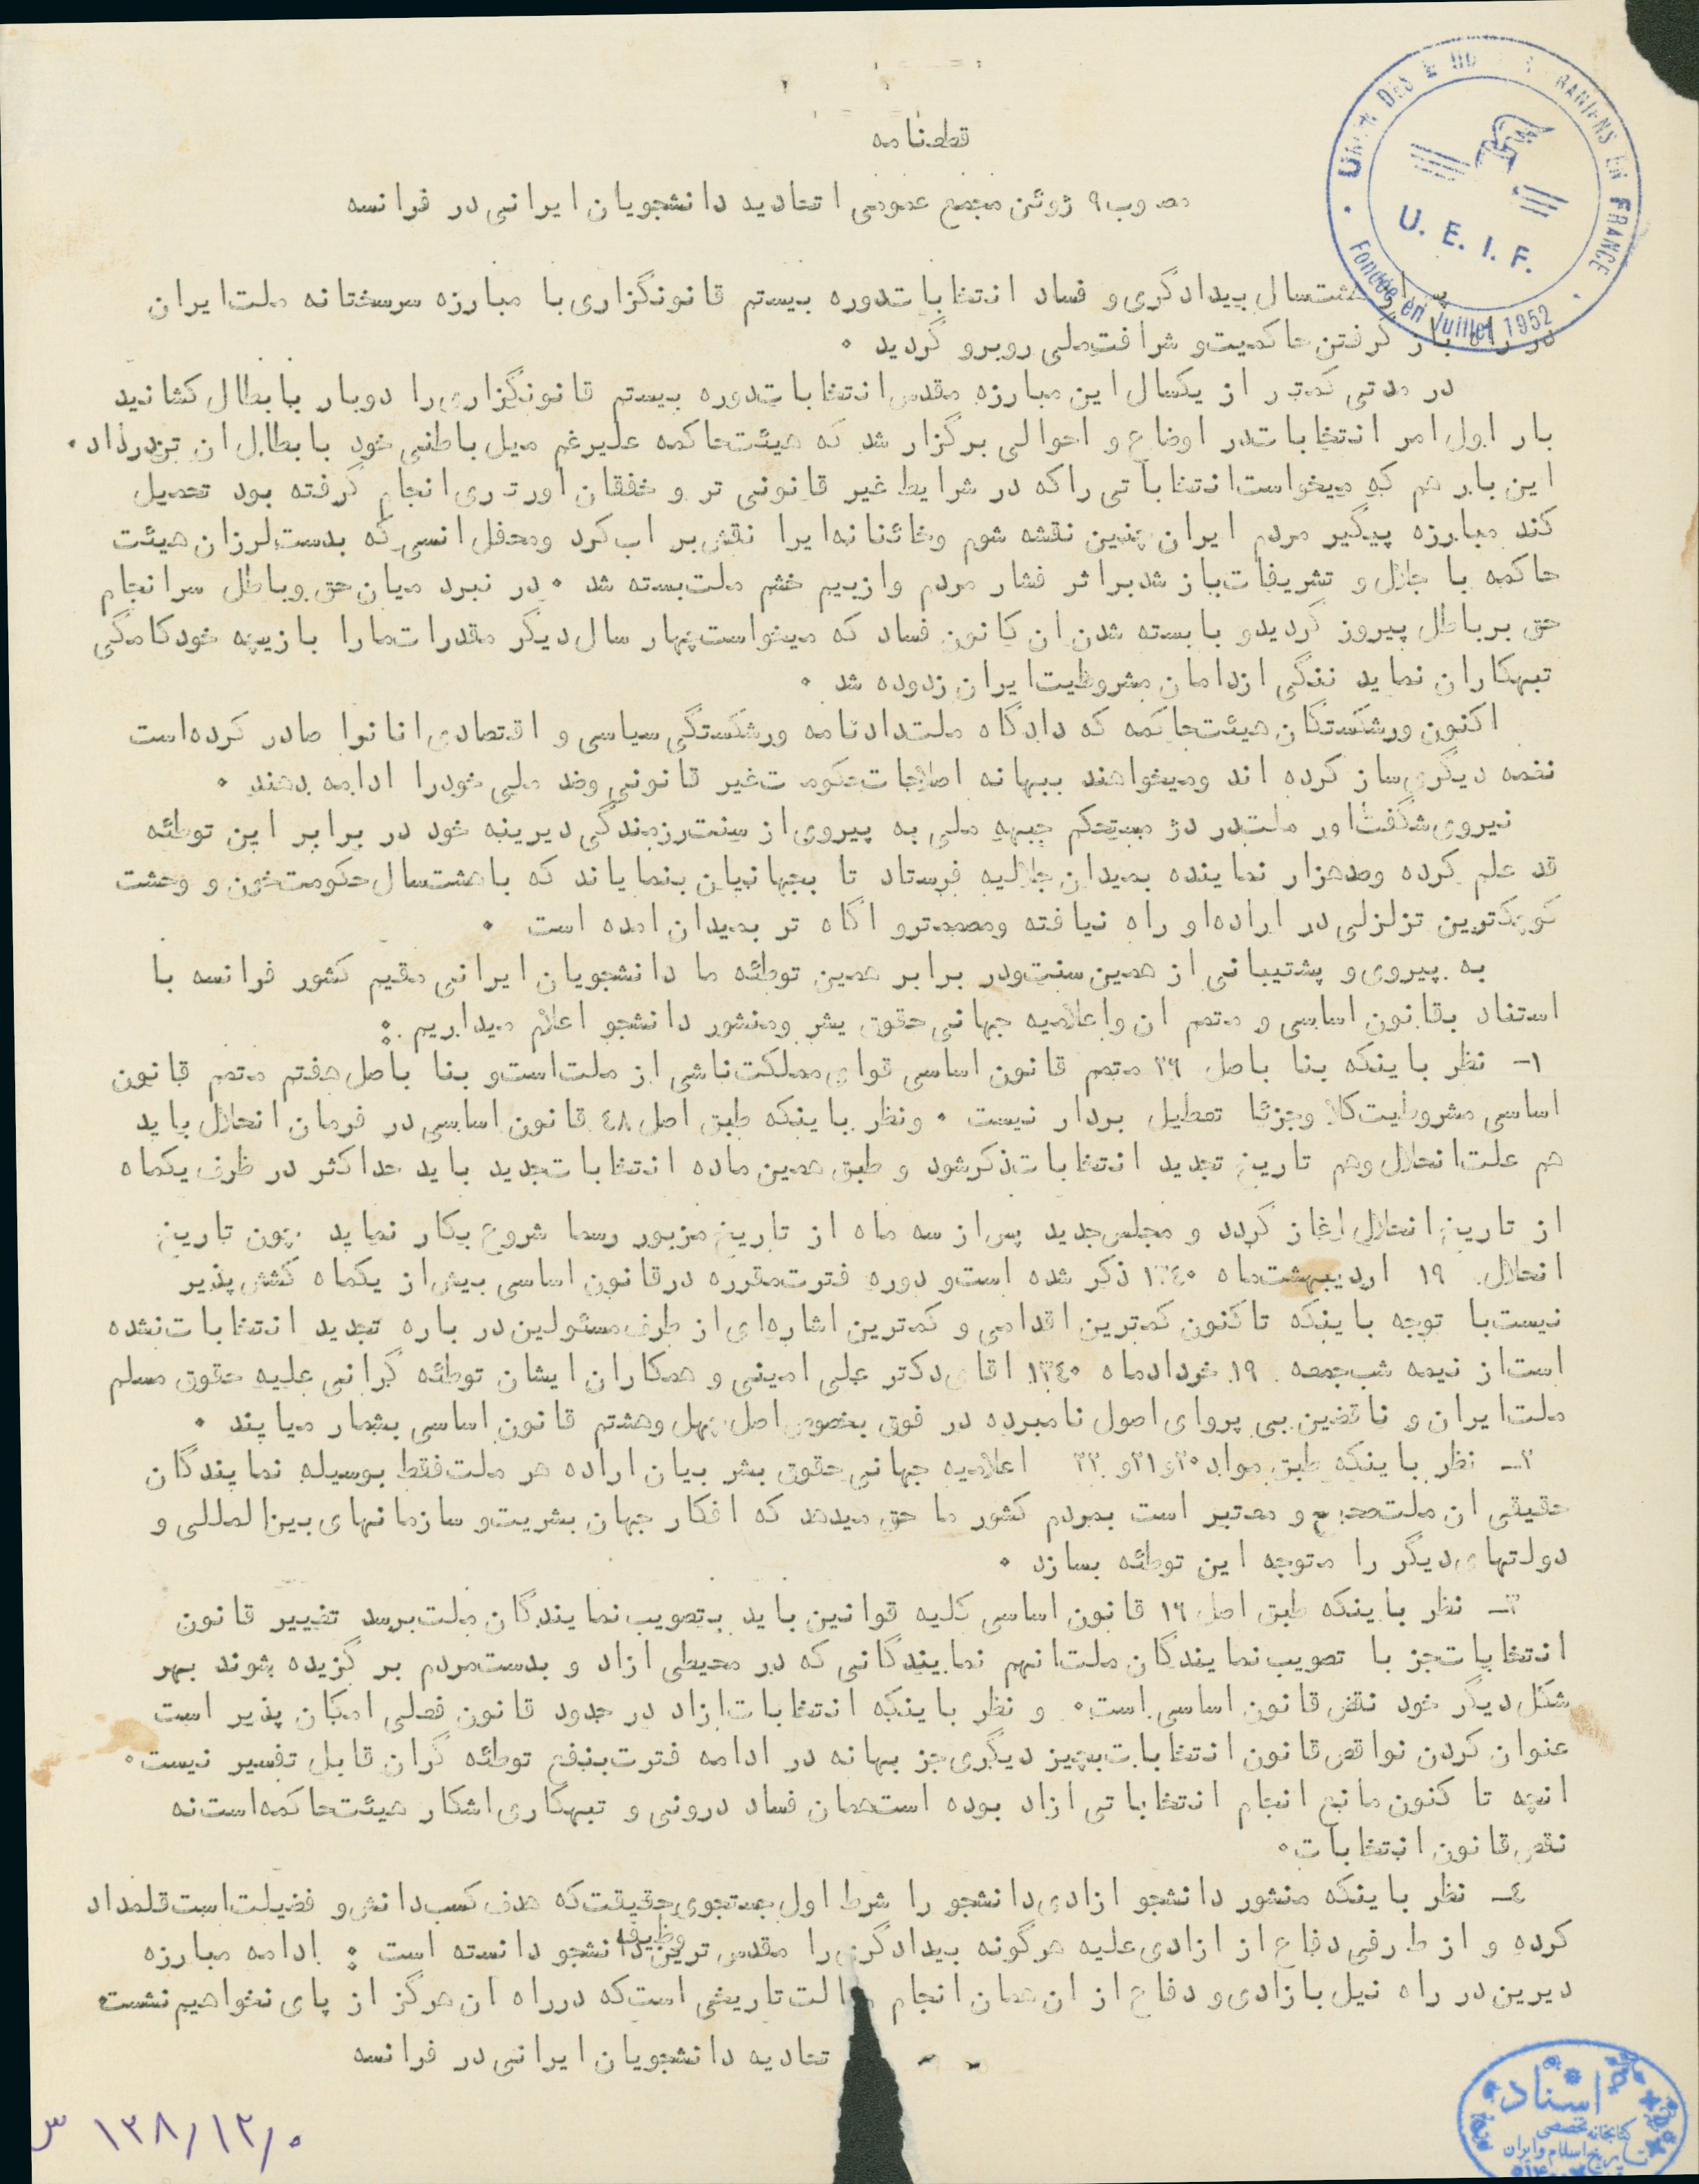 قطعنامه
مصوب ۹ ژوئن مجمع عمومی اتحادیه دانشجویان ایرانی در فرانسه
UNION DES ÉTUDIANTS IRANIENS EN FRANCE
U. E. I. F.
Fondée en Juillet 1952
پس از هشت سال بیدادگری و فساد انتخابات دوره بیستم قانونگزاری با مبارزه سرسختانه ملت ایران
در راه باز گرفتن حاکمیت و شرافت ملی روبرو گردید ۰
در مدتی کمتر از یکسال این مبارزه مقدس انتخابات دوره بیستم قانونگزاری را دوبار بابطال کشانید
بار اول امر انتخابات در اوضاع و احوالی برگزار شد که هیئت حاکمه علیرغم میل باطنی خود بابطال ان تن در داد ۰
این بار هم که میخواست انتخاباتی را که در شرایط غیر قانونی تر و خفقان اور تری انجام گرفته بود تحمیل
کند مبارزه پیگیر مردم ایران چنین نقشه شوم و خائنانه ایرا نقش بر اب کرد و محفل انسی که بدست لرزان هیئت
حاکمه با جلال و تشریفات باز شد بر اثر فشار مردم و از بیم خشم ملت بسته شد ۰ در نبرد میان حق و باطل سرانجام
حق بر باطل پیروز گردید و با بسته شدن ان کانون فساد که میخواست چهار سال دیگر مقدرات ما را بازیچه خودکامگی
تبهکاران نماید ننگی از دامان مشروطیت ایران زدوده شد ۰
اکنون ورشکستگان هیئت حاکمه که دادگاه ملت دادنامه ورشکستگی سیاسی و اقتصادی انانرا صادر کرده است
نغمه دیگری ساز کرده اند و میخواهند ببهانه اصلاحات حکومت غیر قانونی و ضد ملی خود را ادامه بدهند ۰
نیروی شگفت اور ملت در دژ مستحکم جبهه ملی به پیروی از سنت رزمندگی دیرینه خود در برابر این توطئه
قد علم کرده و صد هزار نماینده بمیدان جلالیه فرستاد تا بجهانیان بنمایاند که با هشت سال حکومت خون و وحشت
کوچکترین تزلزلی در اراده او راه نیافته و مصمم تر و اگاه تر بمیدان امده است ۰
به پیروی و پشتیبانی از همین سنت و در برابر همین توطئه ما دانشجویان ایرانی مقیم کشور فرانسه با
استناد بقانون اساسی و متمم ان و اعلامیه جهانی حقوق بشر و منشور دانشجو اعلام میداریم :
۱- نظر باینکه بنا باصل ۲۶ متمم قانون اساسی قوای مملکت ناشی از ملت است و بنا باصل هفتم متمم قانون
اساسی مشروطیت کلا و جزئا تعطیل بردار نیست ۰ و نظر باینکه طبق اصل ٤۸ قانون اساسی در فرمان انحلال باید
هم علت انحلال و هم تاریخ تجدید انتخابات ذکر شود و طبق همین ماده انتخابات جدید باید حداکثر در ظرف یکماه
از تاریخ انحلال اغاز گردد و مجلس جدید پس از سه ماه از تاریخ مزبور رسما شروع بکار نماید ۰ چون تاریخ
انحلال ۱۹ اردیبهشت ماه ۱۳٤۰ ذکر شده است و دوره فترت مقرره در قانون اساسی بیش از یکماه کشش پذیر
نیست با توجه باینکه تا کنون کمترین اقدامی و کمترین اشاره ای از طرف مسئولین در باره تجدید انتخابات نشده
است از نیمه شب جمعه ۱۹ خرداد ماه ۱۳٤۰ اقای دکتر علی امینی و همکاران ایشان توطئه گرانی علیه حقوق مسلم
ملت ایران و ناقضین بی پروای اصول نامبرده در فوق بخصوص اصل چهل و هشتم قانون اساسی بشمار میایند ۰
۲- نظر باینکه طبق مواد ۲۰ و ۲۱ و اعلامیه جهانی حقوق بشر بیان اراده هر ملت فقط بوسیله نمایندگان
حقیقی ان ملت صحیح و معتبر است بمردم کشور ما حق میدهد که افکار جهان بشریت و سازمانهای بین المللی و
دولتهای دیگر را متوجه این توطئه بسازد ۰
۳- نظر باینکه طبق اصل ۱۶ قانون اساسی کلیه قوانین باید بتصویب نمایندگان ملت برسد تغییر قانون
انتخابات جز با تصویب نمایندگان ملت انهم نمایندگانی که در محیطی ازاد و بدست مردم بر گزیده شوند بهر
شکل دیگر خود نقض قانون اساسی است ۰ و نظر باینکه انتخابات ازاد در حدود قانون فعلی امکان پذیر است
عنوان کردن نواقص قانون انتخابات بچیز دیگری جز بهانه در ادامه فترت بنفع توطئه گران قابل تفسیر نیست ۰
انچه تا کنون مانع انجام انتخاباتی ازاد بوده است همان فساد درونی و تبهکاری اشکار هیئت حاکمه است نه
نقص قانون انتخابات ۰
٤- نظر باینکه منشور دانشجو ازادی دانشجو را شرط اول جستجوی حقیقت که هدف کسب دانش و فضیلت است قلمداد
کرده و از طرفی دفاع از ازادی علیه هرگونه بیدادگری را مقدس ترین وظیفه دانشجو دانسته است : ادامه مبارزه
دیرین در راه نیل بازادی و دفاع از ان همان انجام رسالت تاریخی است که در راه ان هرگز از پای نخواهیم نشست
اتحادیه دانشجویان ایرانی در فرانسه
اسناد
کتابخانه تخصصی
تاریخ اسلام و ایران
۱۳۸/۱۲/۰ س